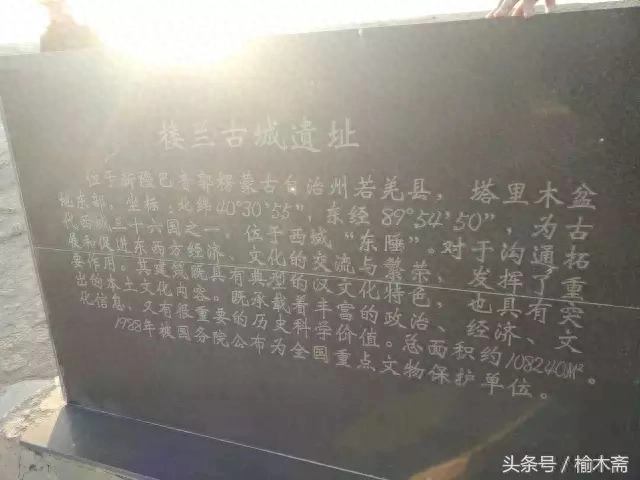 楼兰古城遗址
位于新疆巴音郭楞蒙古自治州若羌县，塔里木盆
地东部，坐标：北纬40°30′55″，东经89°54′50″，为古
代西域三十六国之一，位于西域“东陲”。对于沟通拓
展和促进东西方经济、文化的交流与繁荣、发挥了重
要作用。其建筑既具有典型的汉文化特色，也具有突
出的本土文化内容。既承载着丰富的政治、经济、文
化信息、又有很重要的历史科学价值。总面积约108240M²。
1988年被国务院公布为全国重点文物保护单位。
头条号／榆木斋